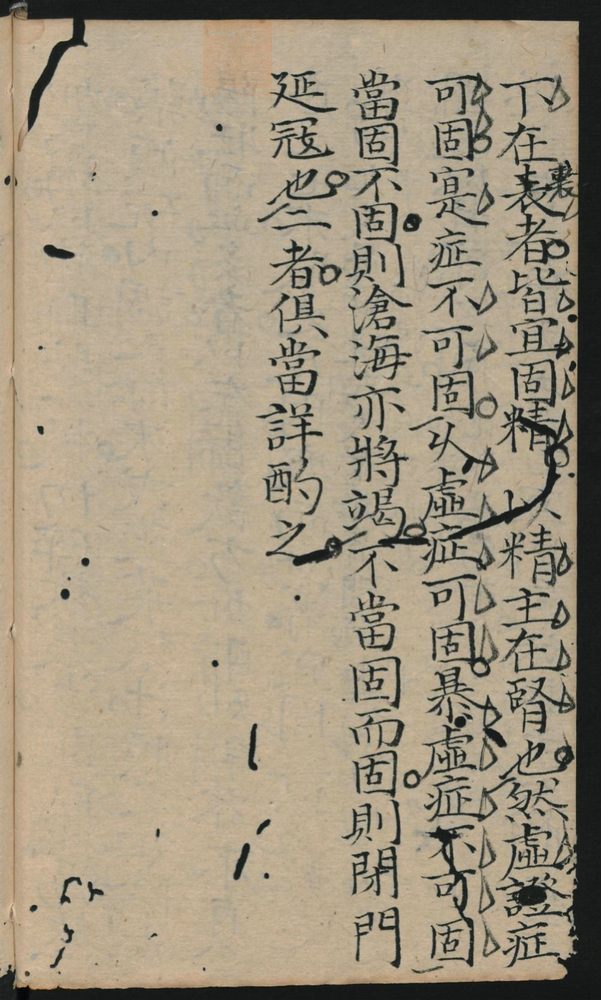 下在表裏者皆宜固精以精主在腎也然虛證症
可固寔症不可固乆虛症可固暴虛症不可固
當固不固則滄海亦將竭不當固而固則閉門
延冦也二者俱當詳酌之